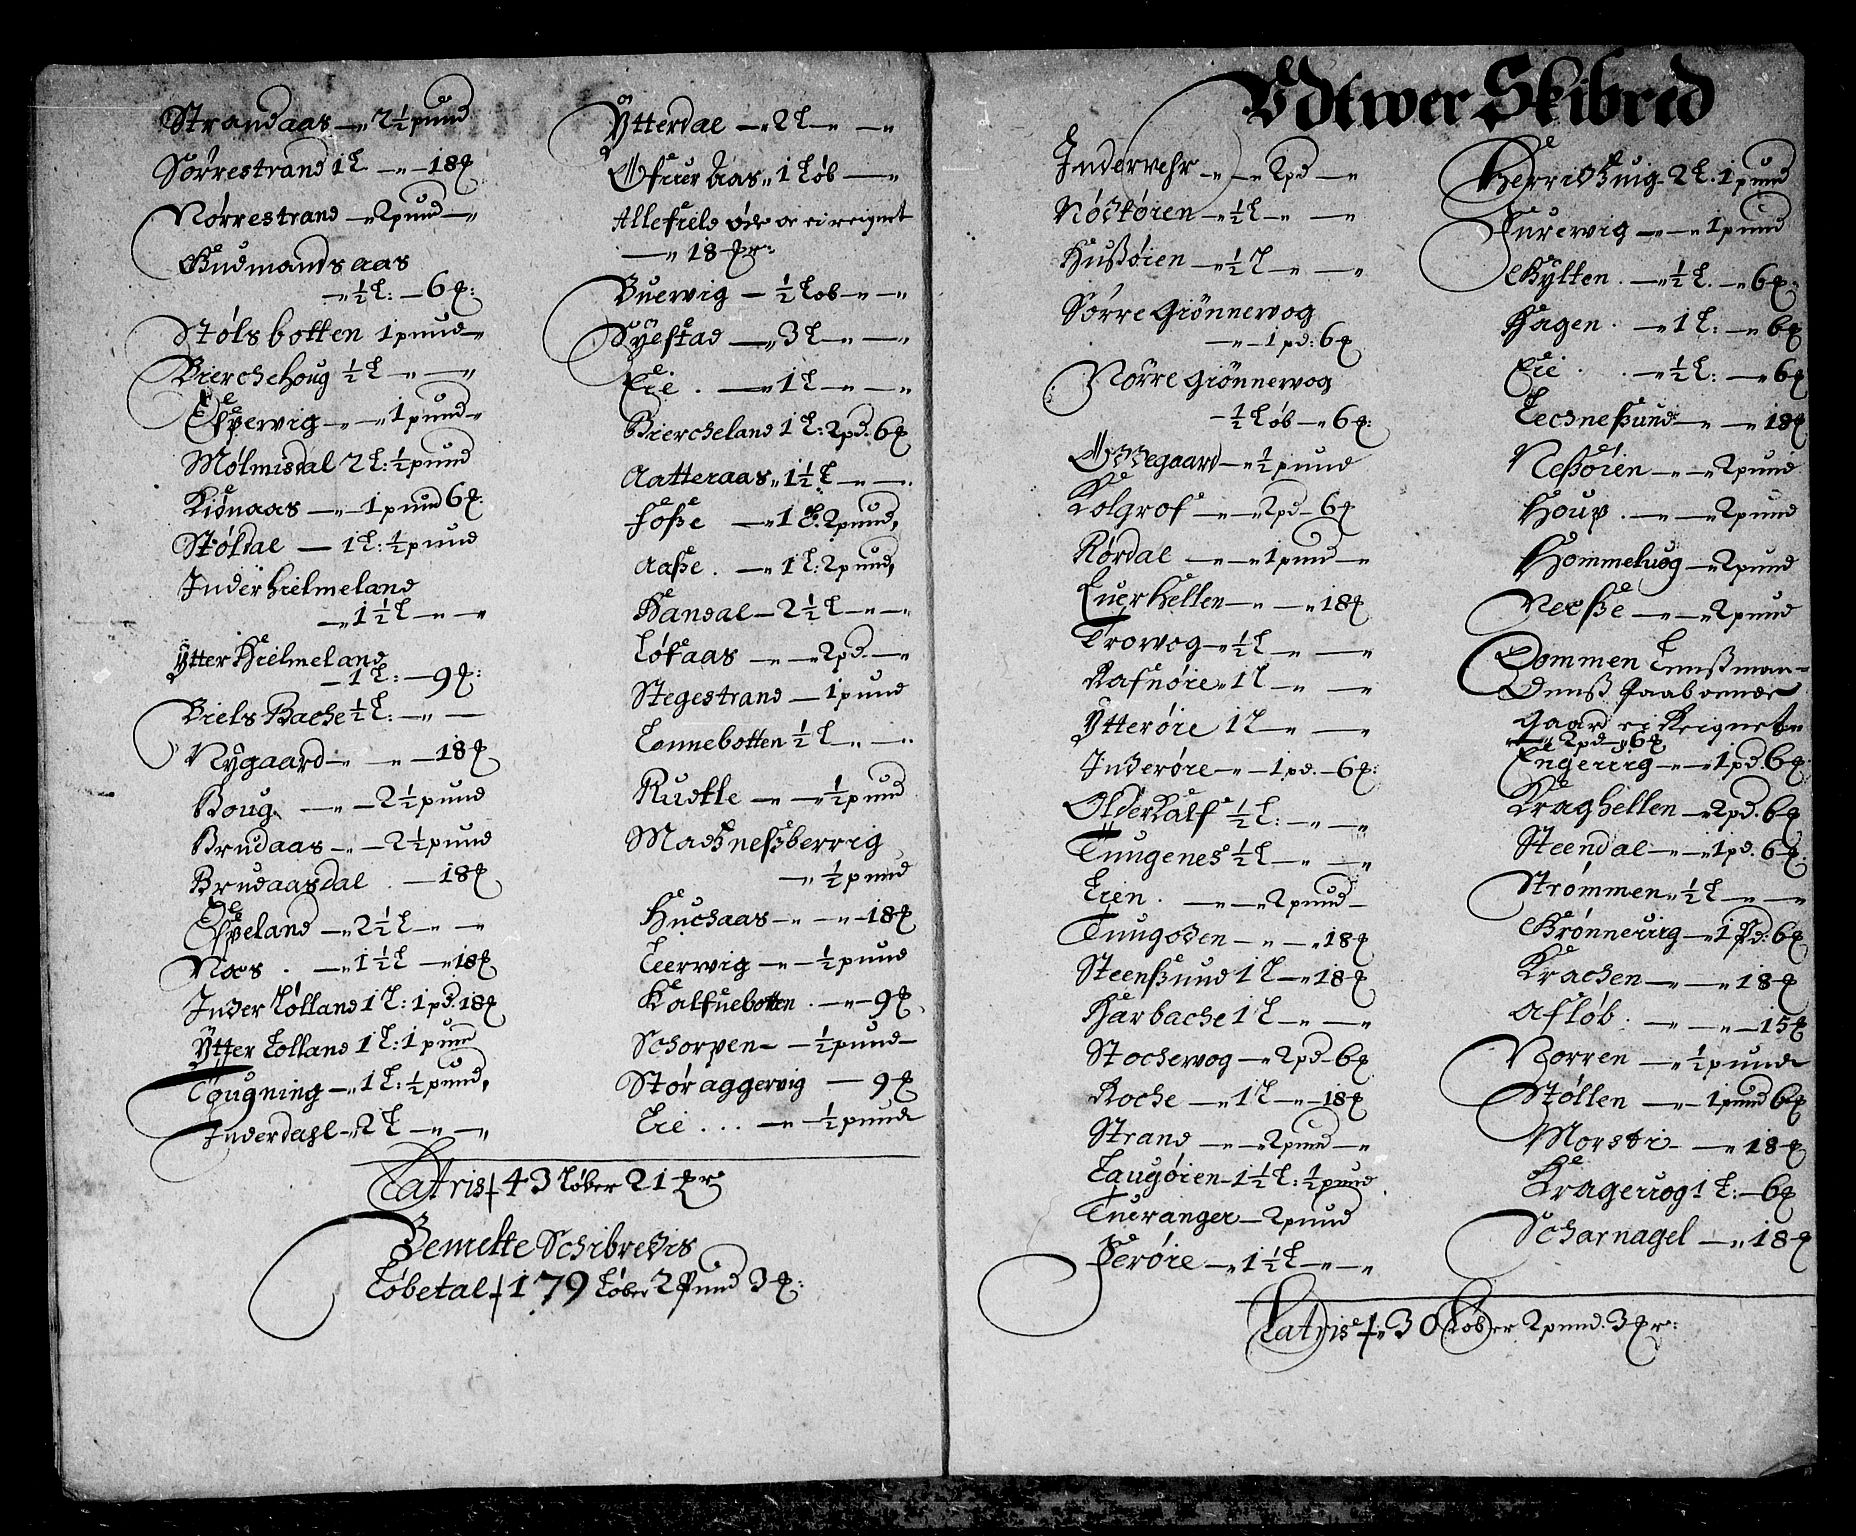 Strandaas — 2½ pund
Sørrestrand 1 L — 18 ꝑ
Nørrestrand — 2 pund —
Gudmandsaas
— ½ L: — 6 ꝑ:
Støls botten 1 pund —
Bierchehoug ½ L — —
Espervig — — 1 pund —
Mølmisdal 2 L: ½ pund
Kidnaas — 1 pund 6 ꝑ:
Støldal — 1 L: ½ pund
Inder hielmeland
— 1½ L — —
Ytter Hielmeland
— 1 L: — 9 ꝑ:
Biels Bache ½ L: — —
Nygaard — — 18 ꝑ
Boug. — — 2½ pund
Brudaas — — 2½ pund
Brudaasdal . — 18 ꝑ
Espeland — 2½ L — —
Noes . — 1½ L — 18 ꝑ
Inder Lølland 1 L: 1 pd. 18 ꝑ
Ytter Lølland 1 L: 1 pund
Tougning — 1 L: ½ pund,
Inderdahl — 2 L — —
Ytterdal — 2 L — —
Ofuer Aas 1 Løb —
Allefield øde oc ei reignet
— 18 ꝑr:
Buervig — ½ Løb — —
Syelstad — 3 L — —
Eie . — 1 L — —
Biercheland 1 L: 2 pd. 6 ꝑ
Aatteraas 1½ L — —
Fosse — 1 L: 2 pund,
Aasse . — 1 L: 2 pund,
Handal — 2½ L — —
Løfaas — — 2 pd. —
Stegestrand — 1 pund
Connebotten ½ L — —
Rudtle — — ½ pund
Madznessberrig
— ½ pund
Huchaas — — 18 ꝑ
Leervig — — ½ pund
Kalfuebotten . — 9 ꝑ
Schorpen — — ½ pund —
Stør aggervig — 9 ꝑ
Eie . . . — ½ pund
Latris 43 Løber 21 ꝑr
Bemelte Schibredis
Løbetal 179 Løber 2 Pund 3 ꝑ:
Vdtwer Skibred
Inderwehr — — 2 pd —
Nødtøien — ½ L — —
Hussøien — ½ L — —
Sørre Giønnevog
— 1 pd: 6 ꝑ
Nørre Giønnevog
½ Løb — 6 ꝑ:
Kolgrof — — 2 pd — 6 ꝑ
Rørdal — — 1 pund —
Euerhellen — — 18 ꝑ
Trovog — ½ L — —
Rafnøre 1 L — —
Ytterøie 1 L — —
Inderøie — 1 pd. — 6 ꝑ:
Older Kalf ½ L: — —
Tuugenes ½ L — —
Eien . — — 2 pund —
Tuugoden — — 18 ꝑ
Steensund 1 L — 18 ꝑ
Harbache 1 L — —
Stochevog — 2 pd — 6 ꝑ
Roche — 1 L — 18 ꝑ
Strand — — 2 pund —
Laugøien — 1½ L: ½ pund
Tueranger — 2 pund
Ferøie — 1½ L — —
Herridzuig 2 L. 1 pund
Furervig — — 1 pund
Gylten . — ½ L. — 6 ꝑ:
Hagen . — 1 L: — 6 ꝑ
Eie . . — ½ L: — 6 ꝑ
Lechnessund — — 18 ꝑ
Nessøien — — 2 pund
Houp . — — 2 pund
Hommeluog — 2 pund
Nersse — — 2 pund
Dommen Lenssman-
denss paaboende
gaard ei Reignet
— 2 pd — 6 ꝑ
Engevig — — 1 pd. 6 ꝑ
Kraghellen — 2 pd. 6 ꝑ
Steendal — — 1 pd. 6 ꝑ
Strømmen ½ L — —
Grønneviig — 1 pd: 6 ꝑ
Krachen — — 18 ꝑ
Afløb . — — 15 ꝑ
Norren — ½ pund
Støllen — 1 pund 6 ꝑ
Morsti — — 18 ꝑ
Kragevog 1 L: — 6 ꝑ
Scharnagel — 18 ꝑ
Latris 30 Løber 2 pund. 3 ꝑr: